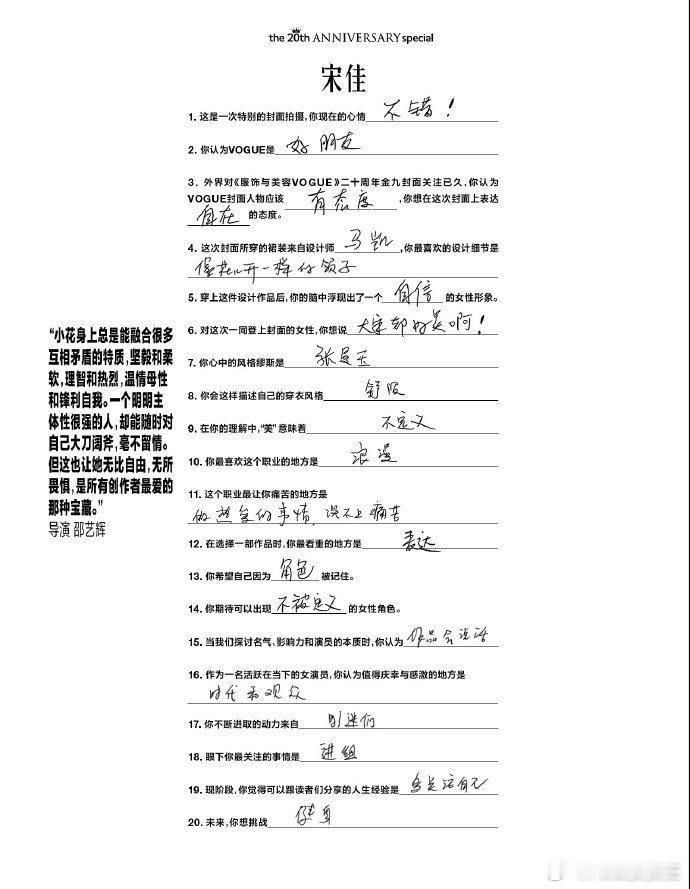 the 20th ANNIVERSARY special
宋佳
1. 这是一次特别的封面拍摄，你现在的心情 不错！
2. 你认为VOGUE是 好朋友
3. 外界对《服饰与美容VOGUE》二十周年金九封面关注已久，你认为
VOGUE封面人物应该 有态度 ，你想在这次封面上表达
自在 的态度。
4. 这次封面所穿的裙装来自设计师 马凯 ，你最喜欢的设计细节是
像花儿开一样的领子
5. 穿上这件设计作品后，你的脑中浮现出了一个 自信 的女性形象。
6. 对这次一同登上封面的女性，你想说 大家都好美啊！
7. 你心中的风格缪斯是 张曼玉
8. 你会这样描述自己的穿衣风格 舒服
9. 在你的理解中，“美”意味着 不定义
10. 你最喜欢这个职业的地方是 浪漫
11. 这个职业最让你痛苦的地方是
做想象的事情，谈不上痛苦
12. 在选择一部作品时，你最看重的地方是 表达
13. 你希望自己因为 角色 被记住。
14. 你期待可以出现 不被定义 的女性角色。
15. 当我们探讨名气、影响力和演员的本质时，你认为 作品会说话
16. 作为一名活跃在当下的女演员，你认为值得庆幸与感激的地方是
时代和观众
17. 你不断进取的动力来自
18. 眼下你最关注的事情是 进组
19. 现阶段，你觉得可以跟读者们分享的人生经验是 多关注自己
20. 未来，你想挑战 健身
“小花身上总是能融合很多
互相矛盾的特质，坚毅和柔
软，理智和热烈，温情母性
和锋利自我。一个明明主
体性很强的人，却能随时对
自己大刀阔斧，毫不留情。
但这也让她无比自由，无所
畏惧，是所有创作者最爱的
那种宝藏。”
导演 邵艺辉